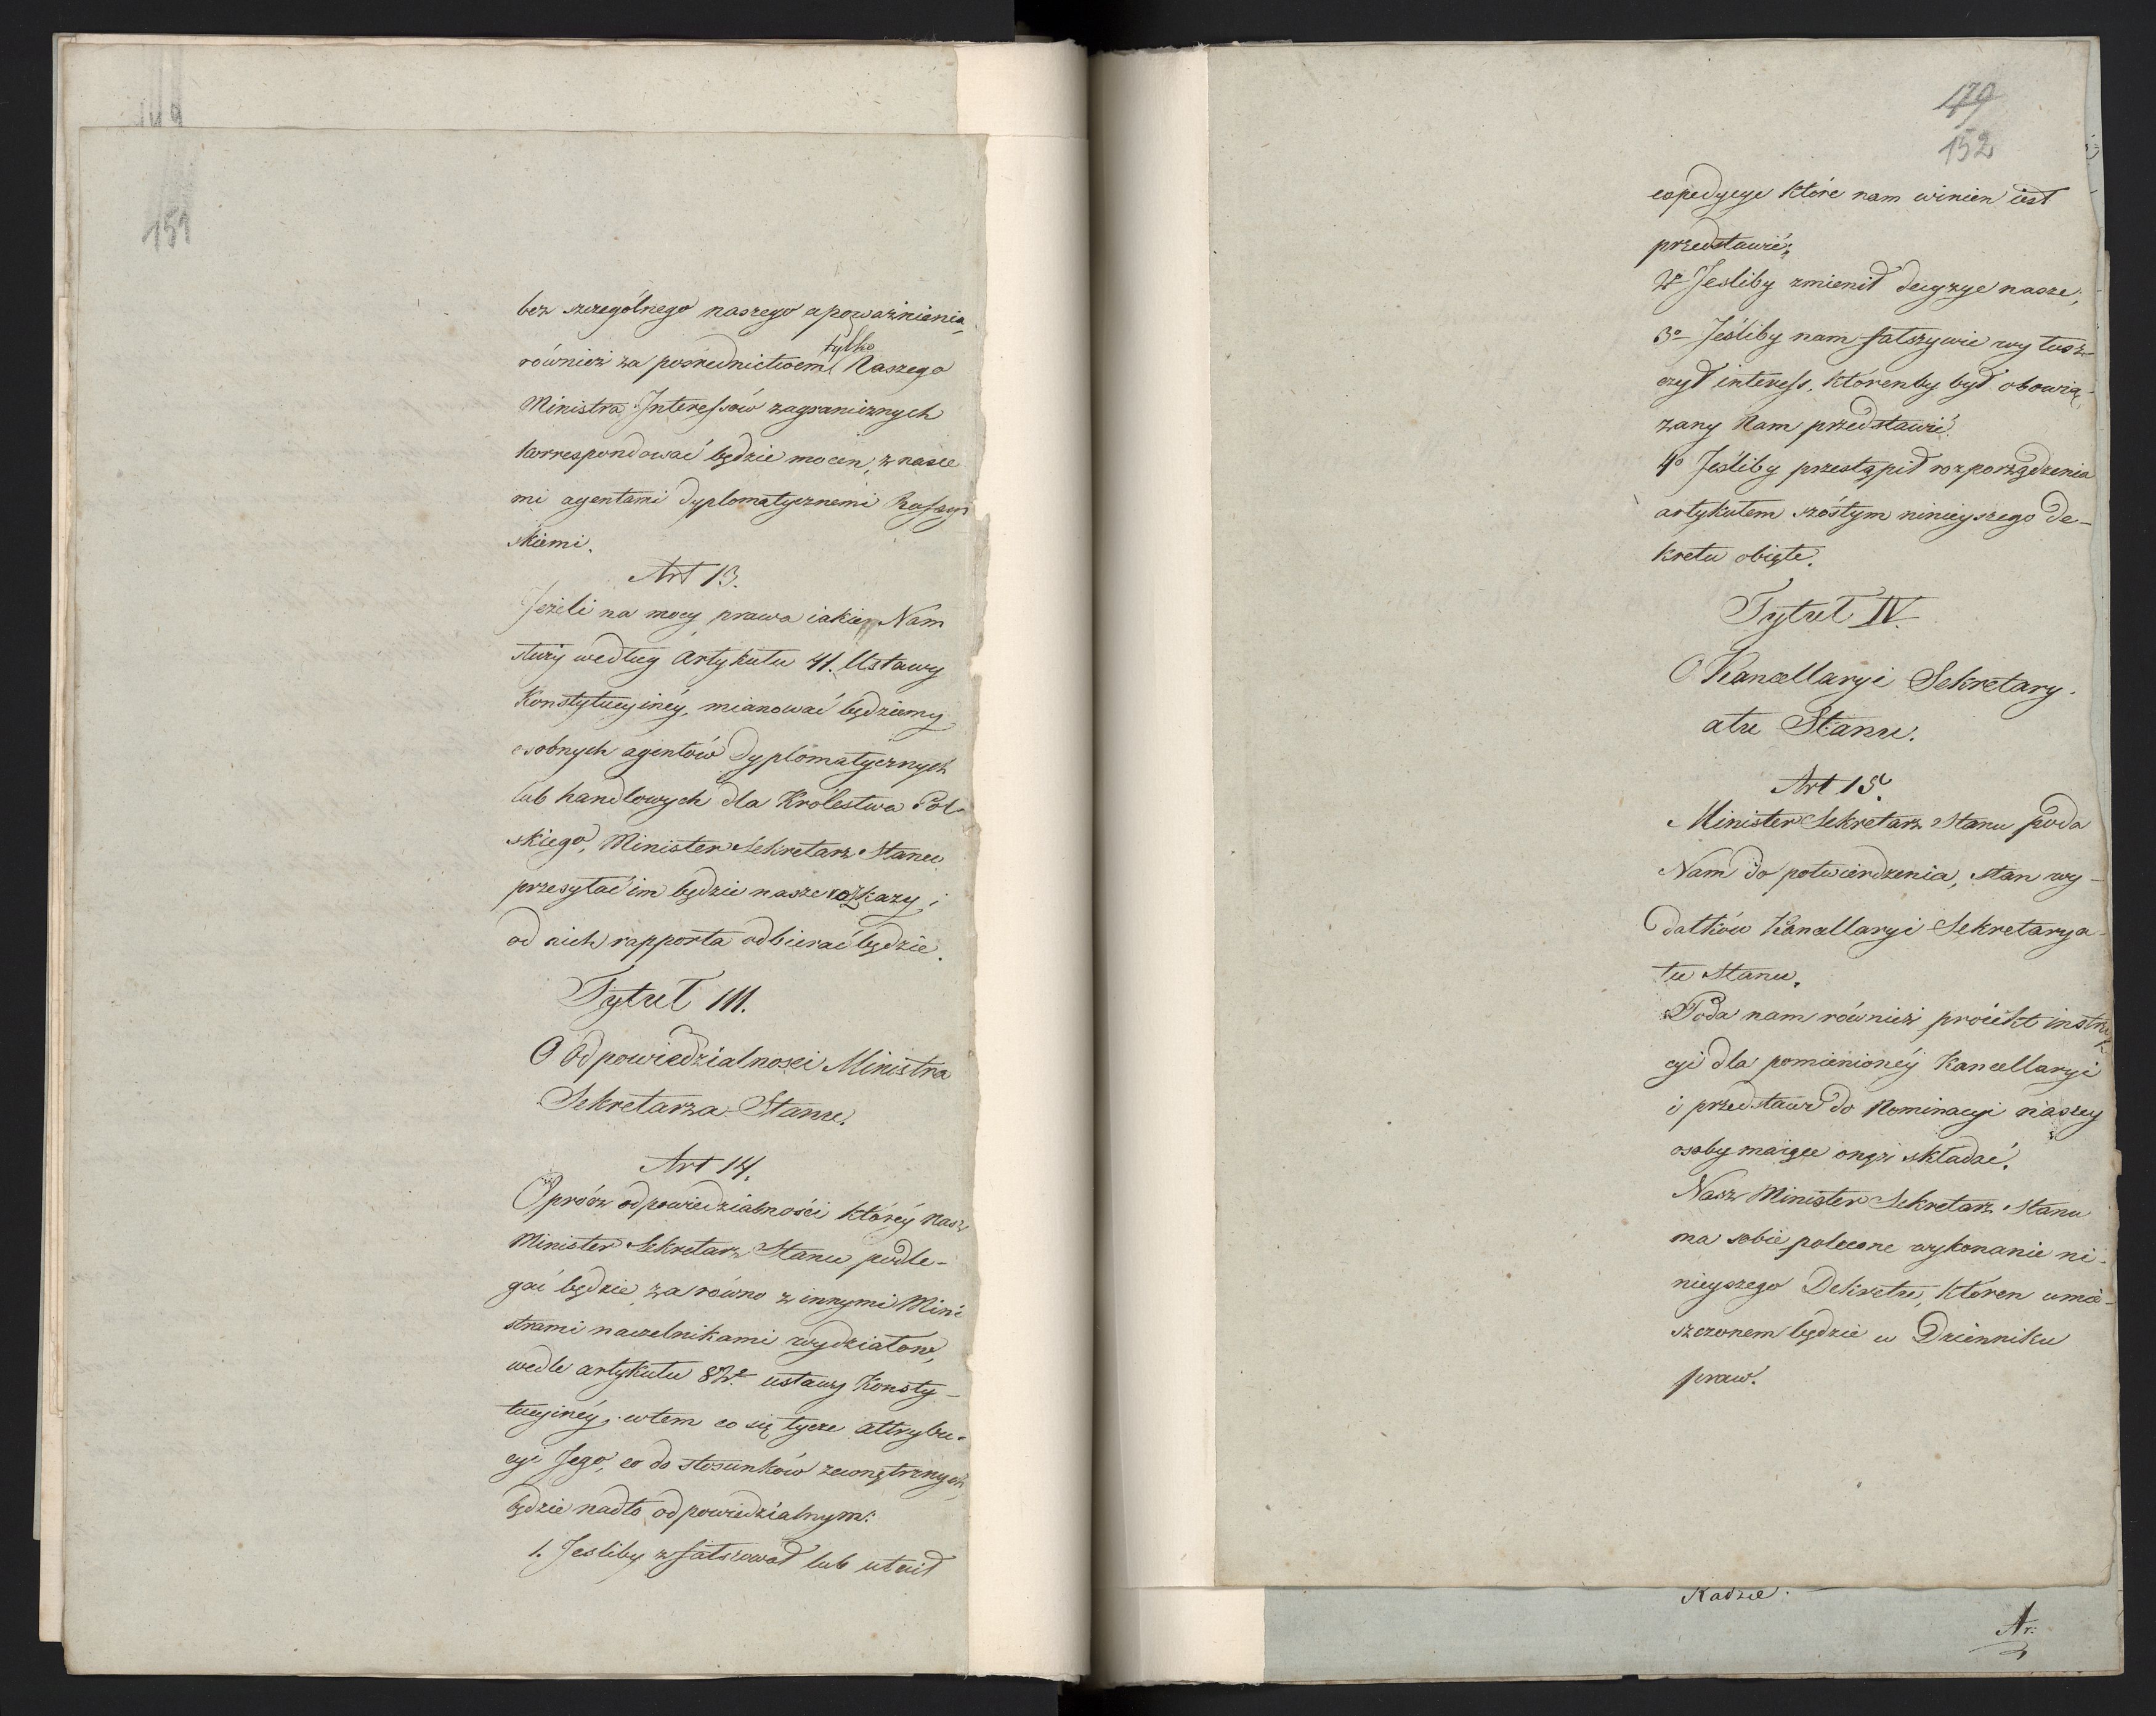 149
151
bez szczególnego naszego upoważnienia,
również za pośrednictwem tylko Naszego
Ministra Interessów zagranicznych
korrespondować będzie mocen, z nasze
mi agentami dyplomatycznemi Rossyj
skiemi.
Art 13.
Jeżeli na mocy prawa iakie Nam
służy według Artykułu 41. Ustawy
Konstytucyinéy, mianować będziemy
osobnych agentów dyplomatycznych
lub handlowych dla Królestwa Pol-
skiego, Minister Sekretarz Stanu
przesyłać im będzie nasze rozkazy i
od nich rapporta odbierać będzie.
Tytuł III.
O Odpowiedzialnosci Ministra
Sekretarza Stanu.
Art 14.
Oprócz odpowiedzialności któréy nasz
Minister Sekretarz Stanu podle-
gać będzie za równo z innymi Mini
strami naczelnikami wydziałow,
wedle artykułu 82º ustawy Konsty-
tucyinéy, wtem co się tycze attrybu-
cyi Jego, co do stosunków zewnętrznych,
będzie nadto odpowiedzialnym:
1. Jesliby zfałszował lub utaił
179
152
expedycye które nam winien iest
przedstawić;
2º Jesliby zmienił decyzye nasze,
3º Jéśliby nam fałszywie wytusz-
czył interess, którenby był obowią-
zany Nam przedstawić
4º Jéśliby przestąpił rozporządzenia
artykułem szóstym ninieyszego De-
kretu obięte.
Tytuł IV.
O Kancellaryi Sekretary-
atu Stanu.
Art 15.
Minister Sekretarz Stanu poda
Nam do potwierdzenia, stan wy-
datków Kancellaryi Sekretarya-
tu Stanu.
Poda nam również proiekt instruk
cyi dla pomienionéy Kancellaryi
i przedstawi do Nominacyi naszey
osoby maiące onąż składać.
Nasz Minister Sekretarz Stanu
ma sobie polecone wykonanie ni-
nieyszego Dekretu, ktoren umie-
szczonem będzie w Dzienniku
praw.
Radzie.
Ar: